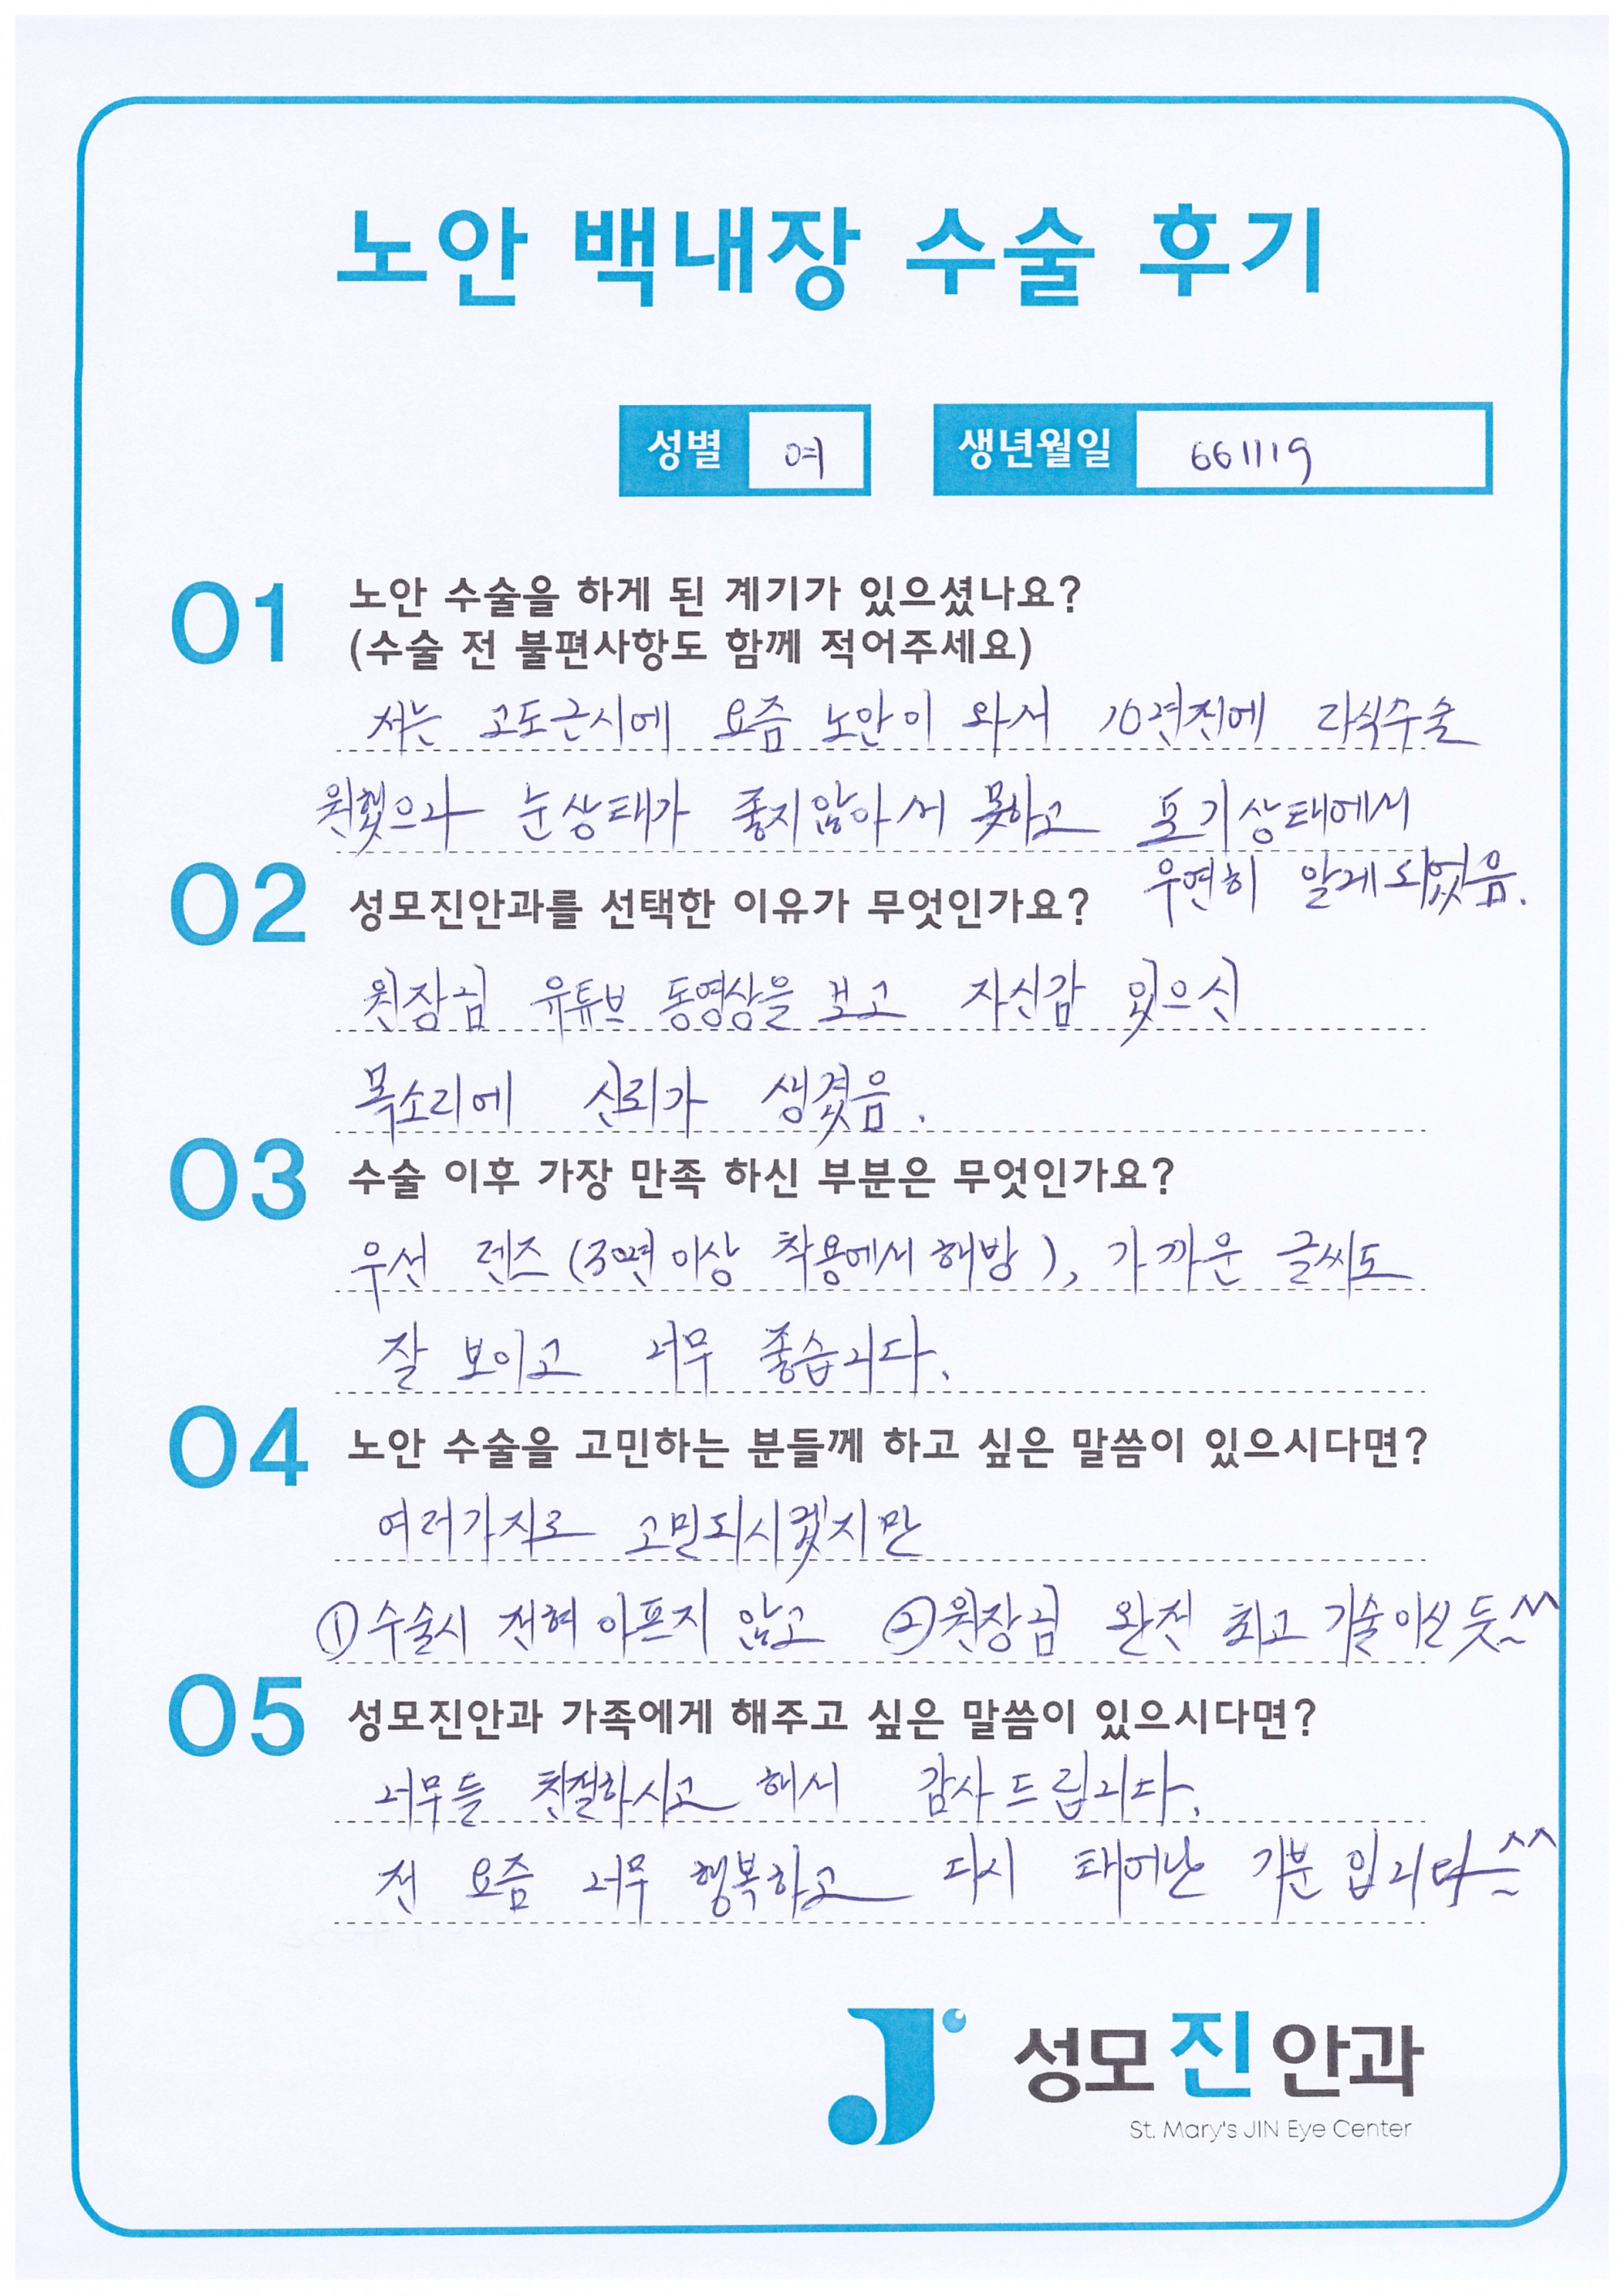 노안 백내장 수술 후기
성별 여 생년월일 661119
01 노안 수술을 하게 된 계기가 있으셨나요?
(수술 전 불편사항도 함께 적어주세요)
저는 고도근시에 요즘 노안이 와서 10년전에 라식수술
원했으나 눈상태가 좋지않아서 못하고 포기상태에서
우연히 알게되었음.
02 성모진안과를 선택한 이유가 무엇인가요?
원장님 유튜브 동영상을 보고 자신감 있으신
목소리에 신뢰가 생겼음.
03 수술 이후 가장 만족 하신 부분은 무엇인가요?
우선 렌즈(30년이상 착용에서 해방), 가까운 글씨도
잘 보이고 너무 좋습니다.
04 노안 수술을 고민하는 분들께 하고 싶은 말씀이 있으시다면?
여러가지로 고민되시겠지만
①수술시 전혀 아프지 않고 ②원장님 완전 최고 기술이신듯~^^
05 성모진안과 가족에게 해주고 싶은 말씀이 있으시다면?
너무들 친절하시고 해서 감사드립니다.
전 요즘 너무 행복하고 다시 태어난 기분입니다~^^
성모진안과
St. Mary's JIN Eye Center